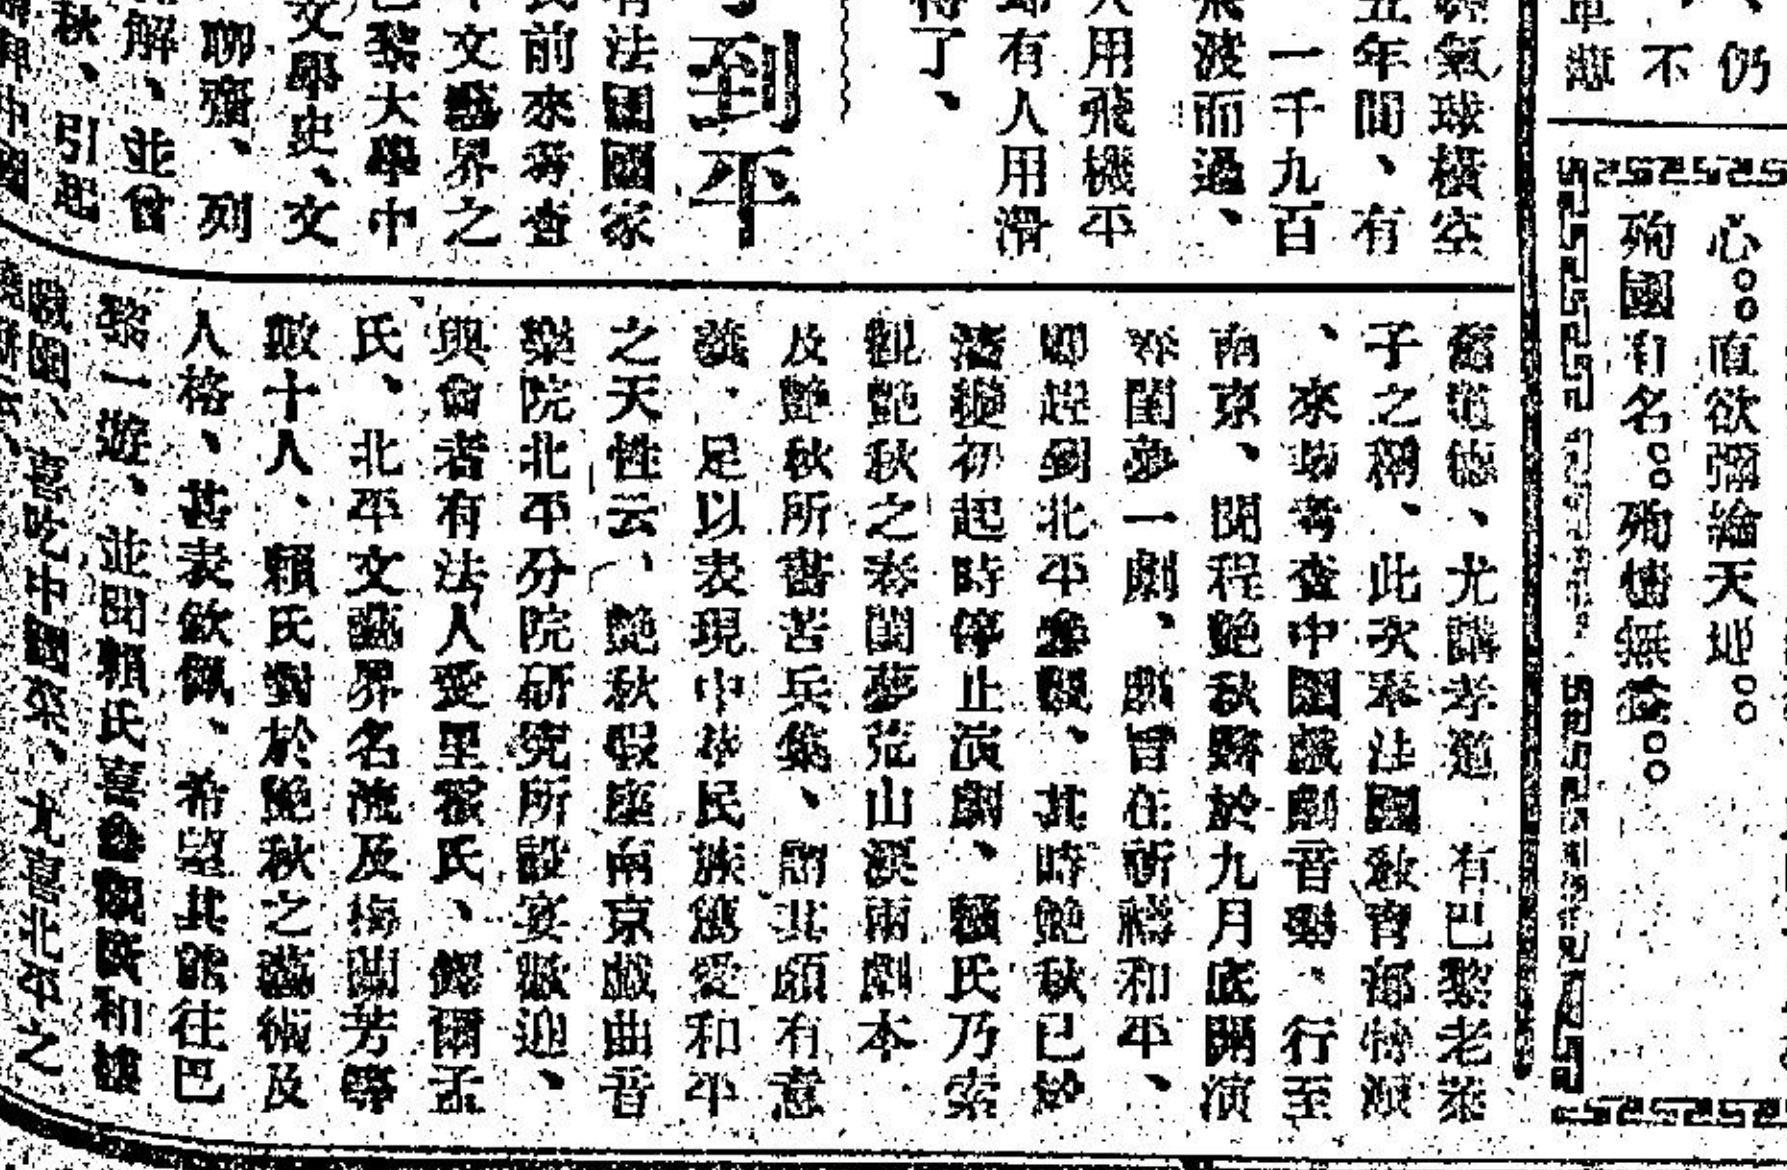 、仍
不
單薄
心。。直欲彌綸天地。。
殉國有名。。殉情無益。。
輕氣球橫空
五年間、有
一千九百
飛渡而過、
人用飛機平
却有人用滑
得了、
到平
有法國國家
氏前來考查
文藝界之
巴黎大學中
文學史、文
聊齋、列
解、並曾
秋、引起
中國
舊道德、尤講孝道 有巴黎老萊
子之稱、此次奉法國敎育部特派
、來華考查中國戲劇音樂、行至
南京、聞程艷秋將於九月底開演
春閨夢一劇、劇旨在祈禱和平、
卽趕到北平參觀、其時艷秋已於
瀋變初起時停止演劇、賴氏乃索
觀艷秋之春閨夢荒山淚兩劇本、
及艷秋所書苦兵集、謂其頗有意
義、足以表現中華民族篤愛和平
之天性云、艷秋假座南京戲曲音
樂院北平分院研究所設宴歡迎、
與會者有法人愛里霍氏、鐸爾孟
氏、北平文藝界名流及梅蘭芳等
數十人、賴氏對於艷秋之藝術及
人格、甚表欽佩、希望其能往巴
黎一遊、並聞賴氏喜參觀廢和樓
戲園、喜吃中國菜、尤喜北平之